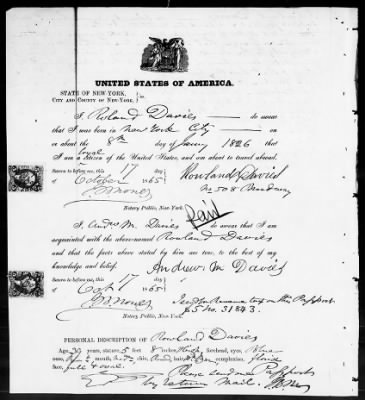 UNITED STATES OF AMERICA.
STATE OF NEW-YORK,
CITY AND COUNTY OF NEW-YORK, } ss.
I, Roland Davies do swear
that I was born in New York City on
or about the 8th day of Jany 1826 that
I am a loyal citizen of the United States, and am about to travel abroad.
Sworn to before me, this 17 day
of October 1865
Rowland Davies
No 508 Broadway
Notary Public, New-York.
Paid
I, Andw M. Davies do swear that I am
acquainted with the above-named Rowland Davies
and that the facts above stated by him are true, to the best of my
knowledge and belief.
Andrew M Davies
Sworn to before me, this 17 day
of Oct 1865
Notary Public, New-York.
$5 No. 31843.
PERSONAL DESCRIPTION OF Rowland Davies
Age, 39 years, stature, 5 feet 8 inches, High forehead, eyes, Blue
nose, mouth, chin, hair, complexion, florid
face, full & oval.
Please send me Passport
by return mail.